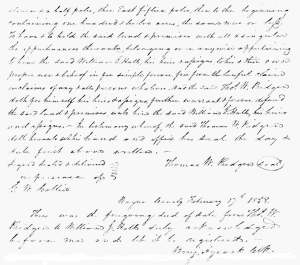 pole, then East fifteen poles, then to the beginning
containing one hundred & twelve acres, the same more or less
To have & to hold the said land & premises with all & singular
the appurtenances thereunto belonging or in anywise appertaining
to him the said William J. Hall, his heirs & assigns to his & their own
proper use & behoof in fee simple forever free from the lawful claim
of any & all persons whom. And the said Thos. W. Rodgers
doth for himself his heirs & assigns further warrant & forever defend
the said land & premises unto him the said William J. Hall, his heirs
and assigns. In testimony whereof the said Thomas W. Rodgers
doth hereunto set his hand and affix his seal the day &
date first above written.
Signed sealed & delivered
in presence of
Thomas W. Rodgers (seal)
Wayne County February 17th 1858.
Then was the foregoing deed of sale from Thos. W.
Rodgers to William J. Hall duly acknowledged
before me and let it be registered.
Clk.